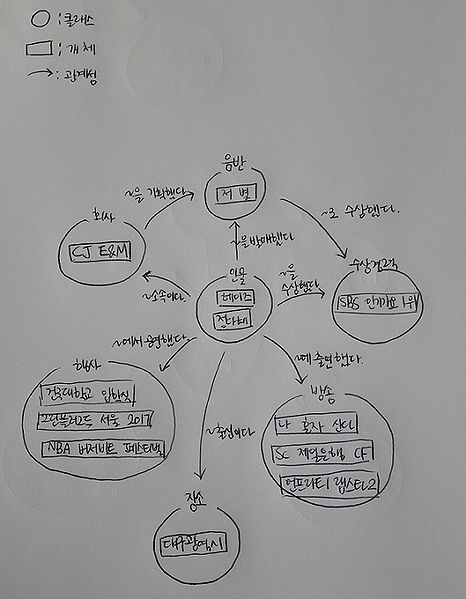 ○ : 클래스
□ : 개체
→ : 관계성
음반
저 별
~을 기획했다.
~로 수상했다.
회사
CJ E&M
~을 발매했다
인물
헤이즈
~을
수상했다.
수상경력
SBS 인기가요 1위
~소속이다.
~에서 공연했다.
~에 출연했다.
행사
건국대학교 입학식
그린플러그드 서울 2017
NBA 버저비트 페스티벌
방송
나 혼자 산다
SC 제일은행 CF
언프리티 랩스타2
~출신이다
장소
대구광역시